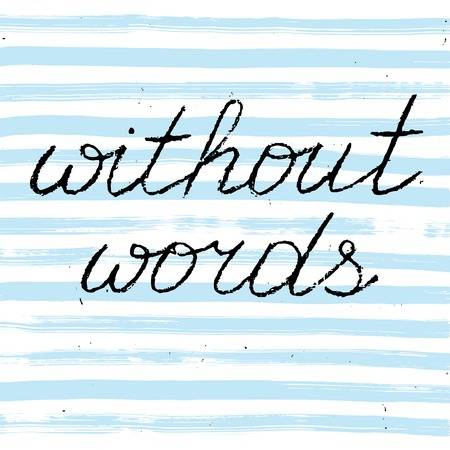 without
words